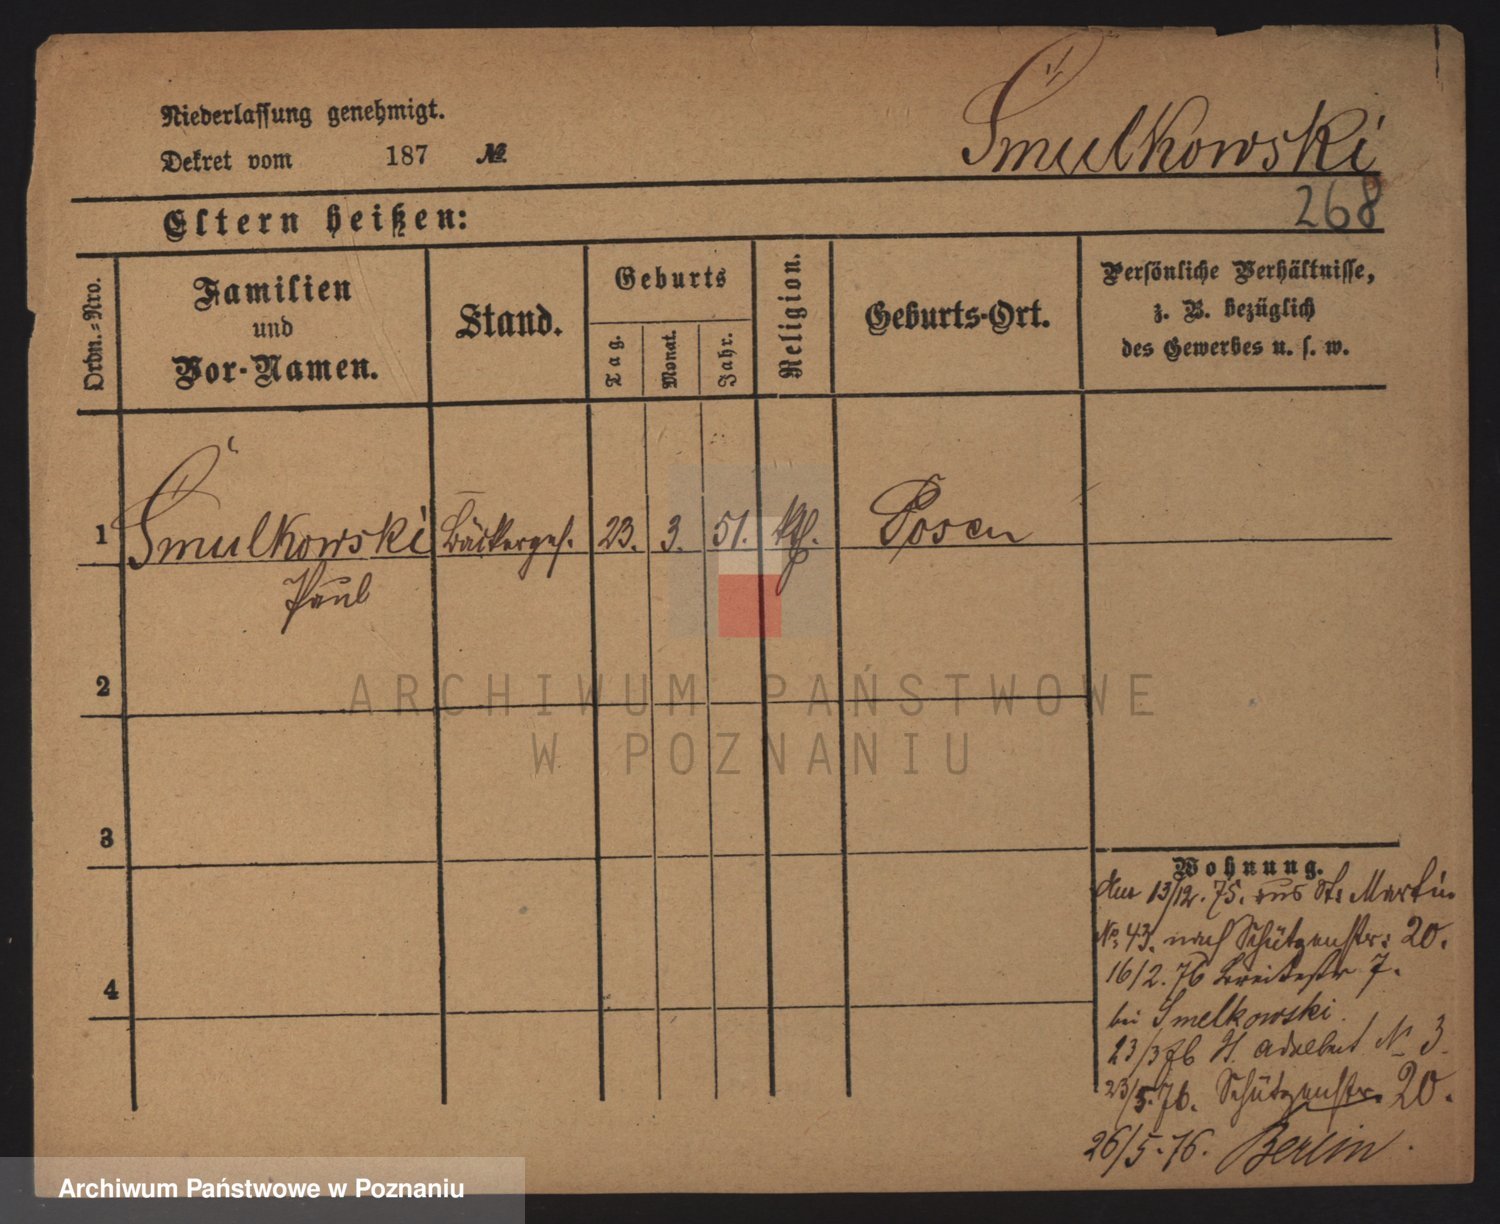 Niederlassung genehmigt.
Dekret vom 187 №
Smulkowski
268
Eltern heißen:
Ordn.-Nro.
Familien
und
Vor-Namen.
Stand.
Geburts
Tag.
Monat.
Jahr.
Religion.
Geburts-Ort.
Persönliche Verhältnisse,
z. B. bezüglich
des Gewerbes u. s. w.
1 Smulkowski Bäckerges. 23. 3. 51. kth. Posen
Paul
2
3
4
Wohnung.
13/12. 75. aus St. Martin
No. 43. nach Schützenstr. 20.
16/2. 76 Breitestr 7.
bei Smelkowski.
23/3 76 St. Adalbert N 3
23/5. 76. Schützenstr. 20.
26/5. 76. Berlin.
ARCHIWUM PAŃSTWOWE
W POZNANIU
Archiwum Państwowe w Poznaniu